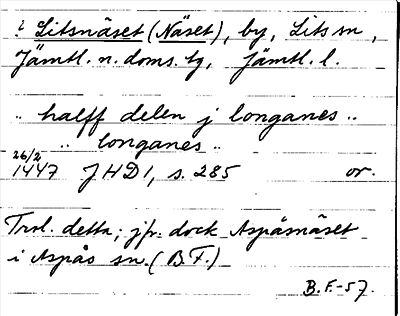 ? Litsnäset (Näset), by, Lits sn,
Jämtl. n. doms. tg, Jämtl. l.
" halff delen j longanes "
" longanes "
26/2 1447 JHD 1, s. 285 or.
Trol. detta; jfr. dock Aspåsnäset
i Aspås sn. (B.F.)
B.F.-57.